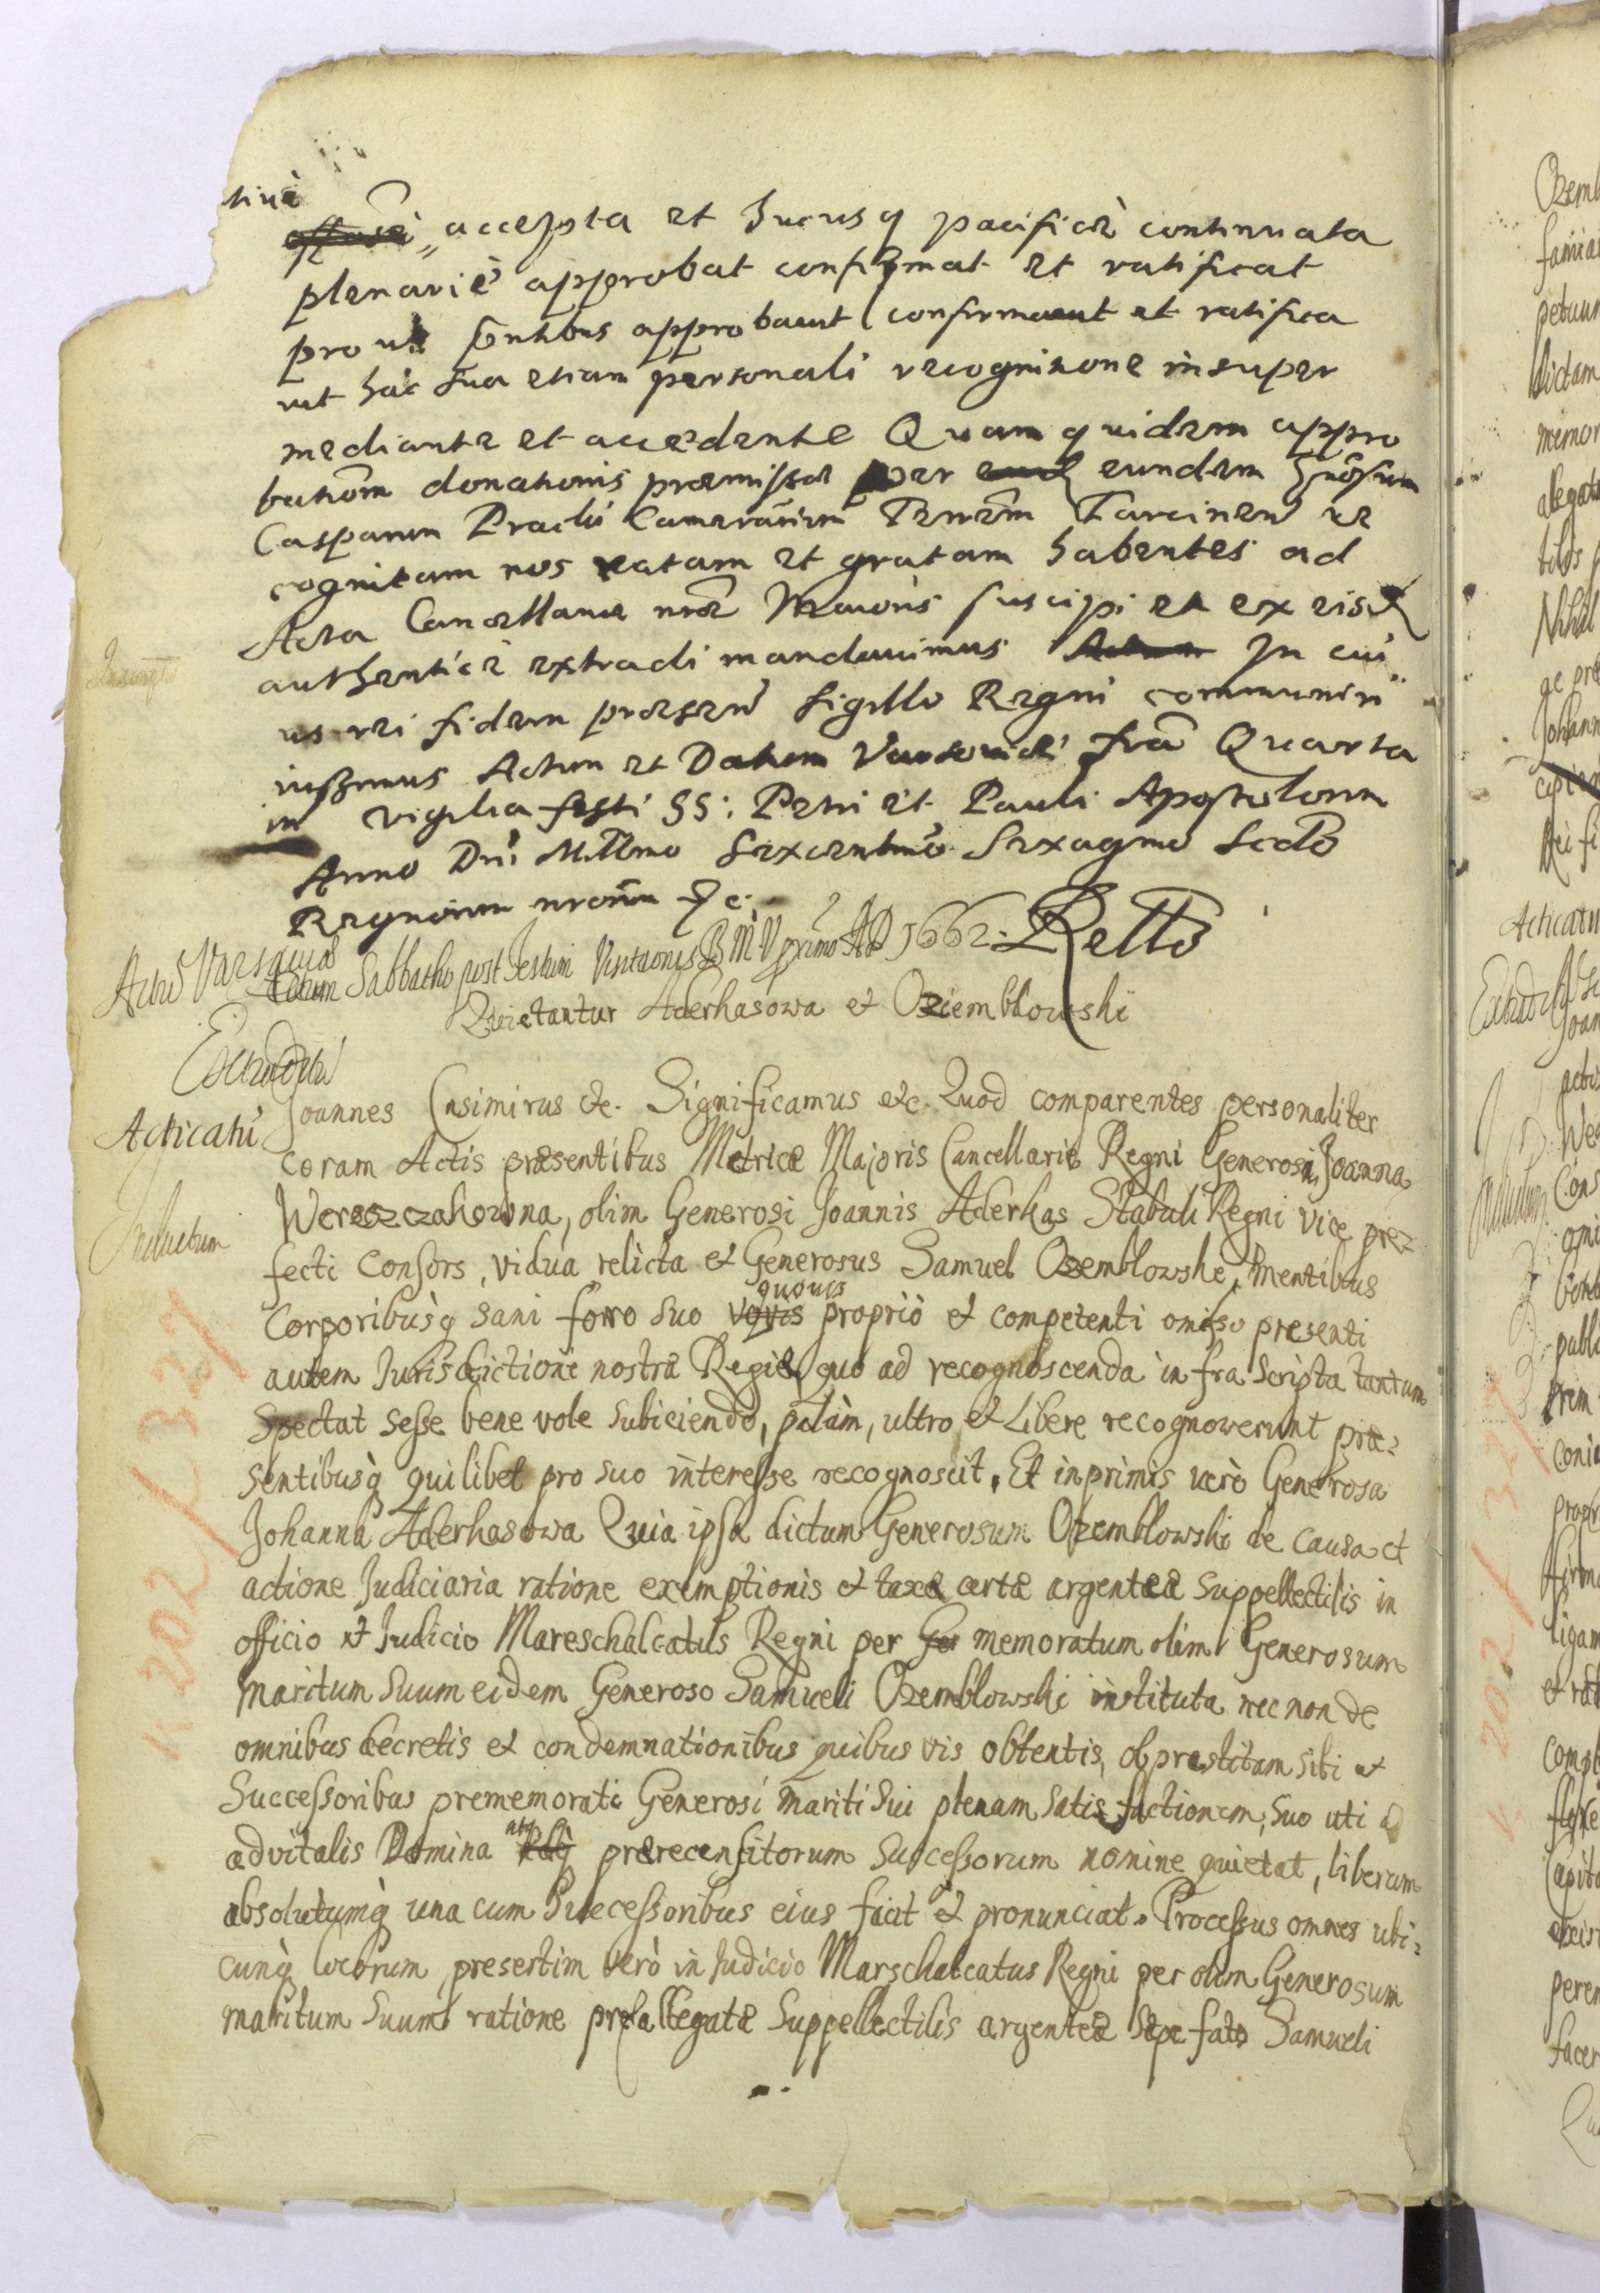 tivè
accepta et hucusq pacificè continuata
plenariè approbat confirmat et ratificat
prout pntibus approbavit confirmavit et ratifica
vit hac sua etiam personali recognitione insuper
mediante et accedente Quam quidem appro
bationem donationis præmissæ per eund eundem Gnosum
Casparum Camerarium Terrem recognitam nos ratam et gratam habentes ad
Acta Cancellariæ nræ Maioris suscipi et ex eisd
authenticè extradi mandavimus Actum In cui
us rei fidem præsen Sigillo Regni communiri
iussimus Actum et Datum Varsoviæ fria Quarta
in vigilia festi SS: Petri et Pauli Apostolorum
Anno Dni Millmo Sexcentmo Sexagmo Scdo
Regnorum nrorum &c.
Actu Varsaviæ Sabbatho post Festum Visitaonis B M V primo AD 1662.
Quietantur Aderkasowa et Oziemblowski
Joannes Casimirus &c. Significamus etc. Quod comparentes personaliter
Acticatu
coram Actis præsentibus Metricæ Majoris Cancellariæ Regni Generosi, Joanna
Wereszczakowna, olim Generosi Joannis Aderkas Stabuli Regni vice præ=
Inductum
fecti Consors, vidua relicta et Generosus Samuel Ozemblowske, Mentibus
quovis
Corporibusq sani forro suo vovis propriò et competenti omisso presenti
autem Jurisdictione nostræ Regiæ, quo ad recognoscenda infra scripta tantum
Spectat sesse bene vole subiciendo, palàm, ultro et Libere recognowerunt præ=
sentibusq quilibet pro suo interesse recognoscit, Et inprimis verò Generosa
Johanna Aderkasowa Quia ipsa dictum Generosum Ozemblowski de causa et
actione Judiciaria ratione exemptionis et taxæ certæ argenteæ suppellectilis in
officio et Judicio Mareschalcatus Regni per Ger memoratum olim Generosum
maritum suum eidem Generoso Samueli Ozemblowski instituta nec non de
omnibus decretis et condemnationibus quibus vis obtentis, ob præstitam sibi et
Successoribus prememorati Generosi mariti sui plenam satisfactionem, suo uti
advitalis Domina atq prærecensitorum successorum nomine quietat, liberum
absolutumq una cum Successoribus eius facit et pronunciat. Processus omnes ubi=
cunq locorum presertim verò in Judicio Marschalcatus Regni per olim Generosum
maritum suum ratione præallegatæ Suppellectilis argenteæ sæpe fato Samueli